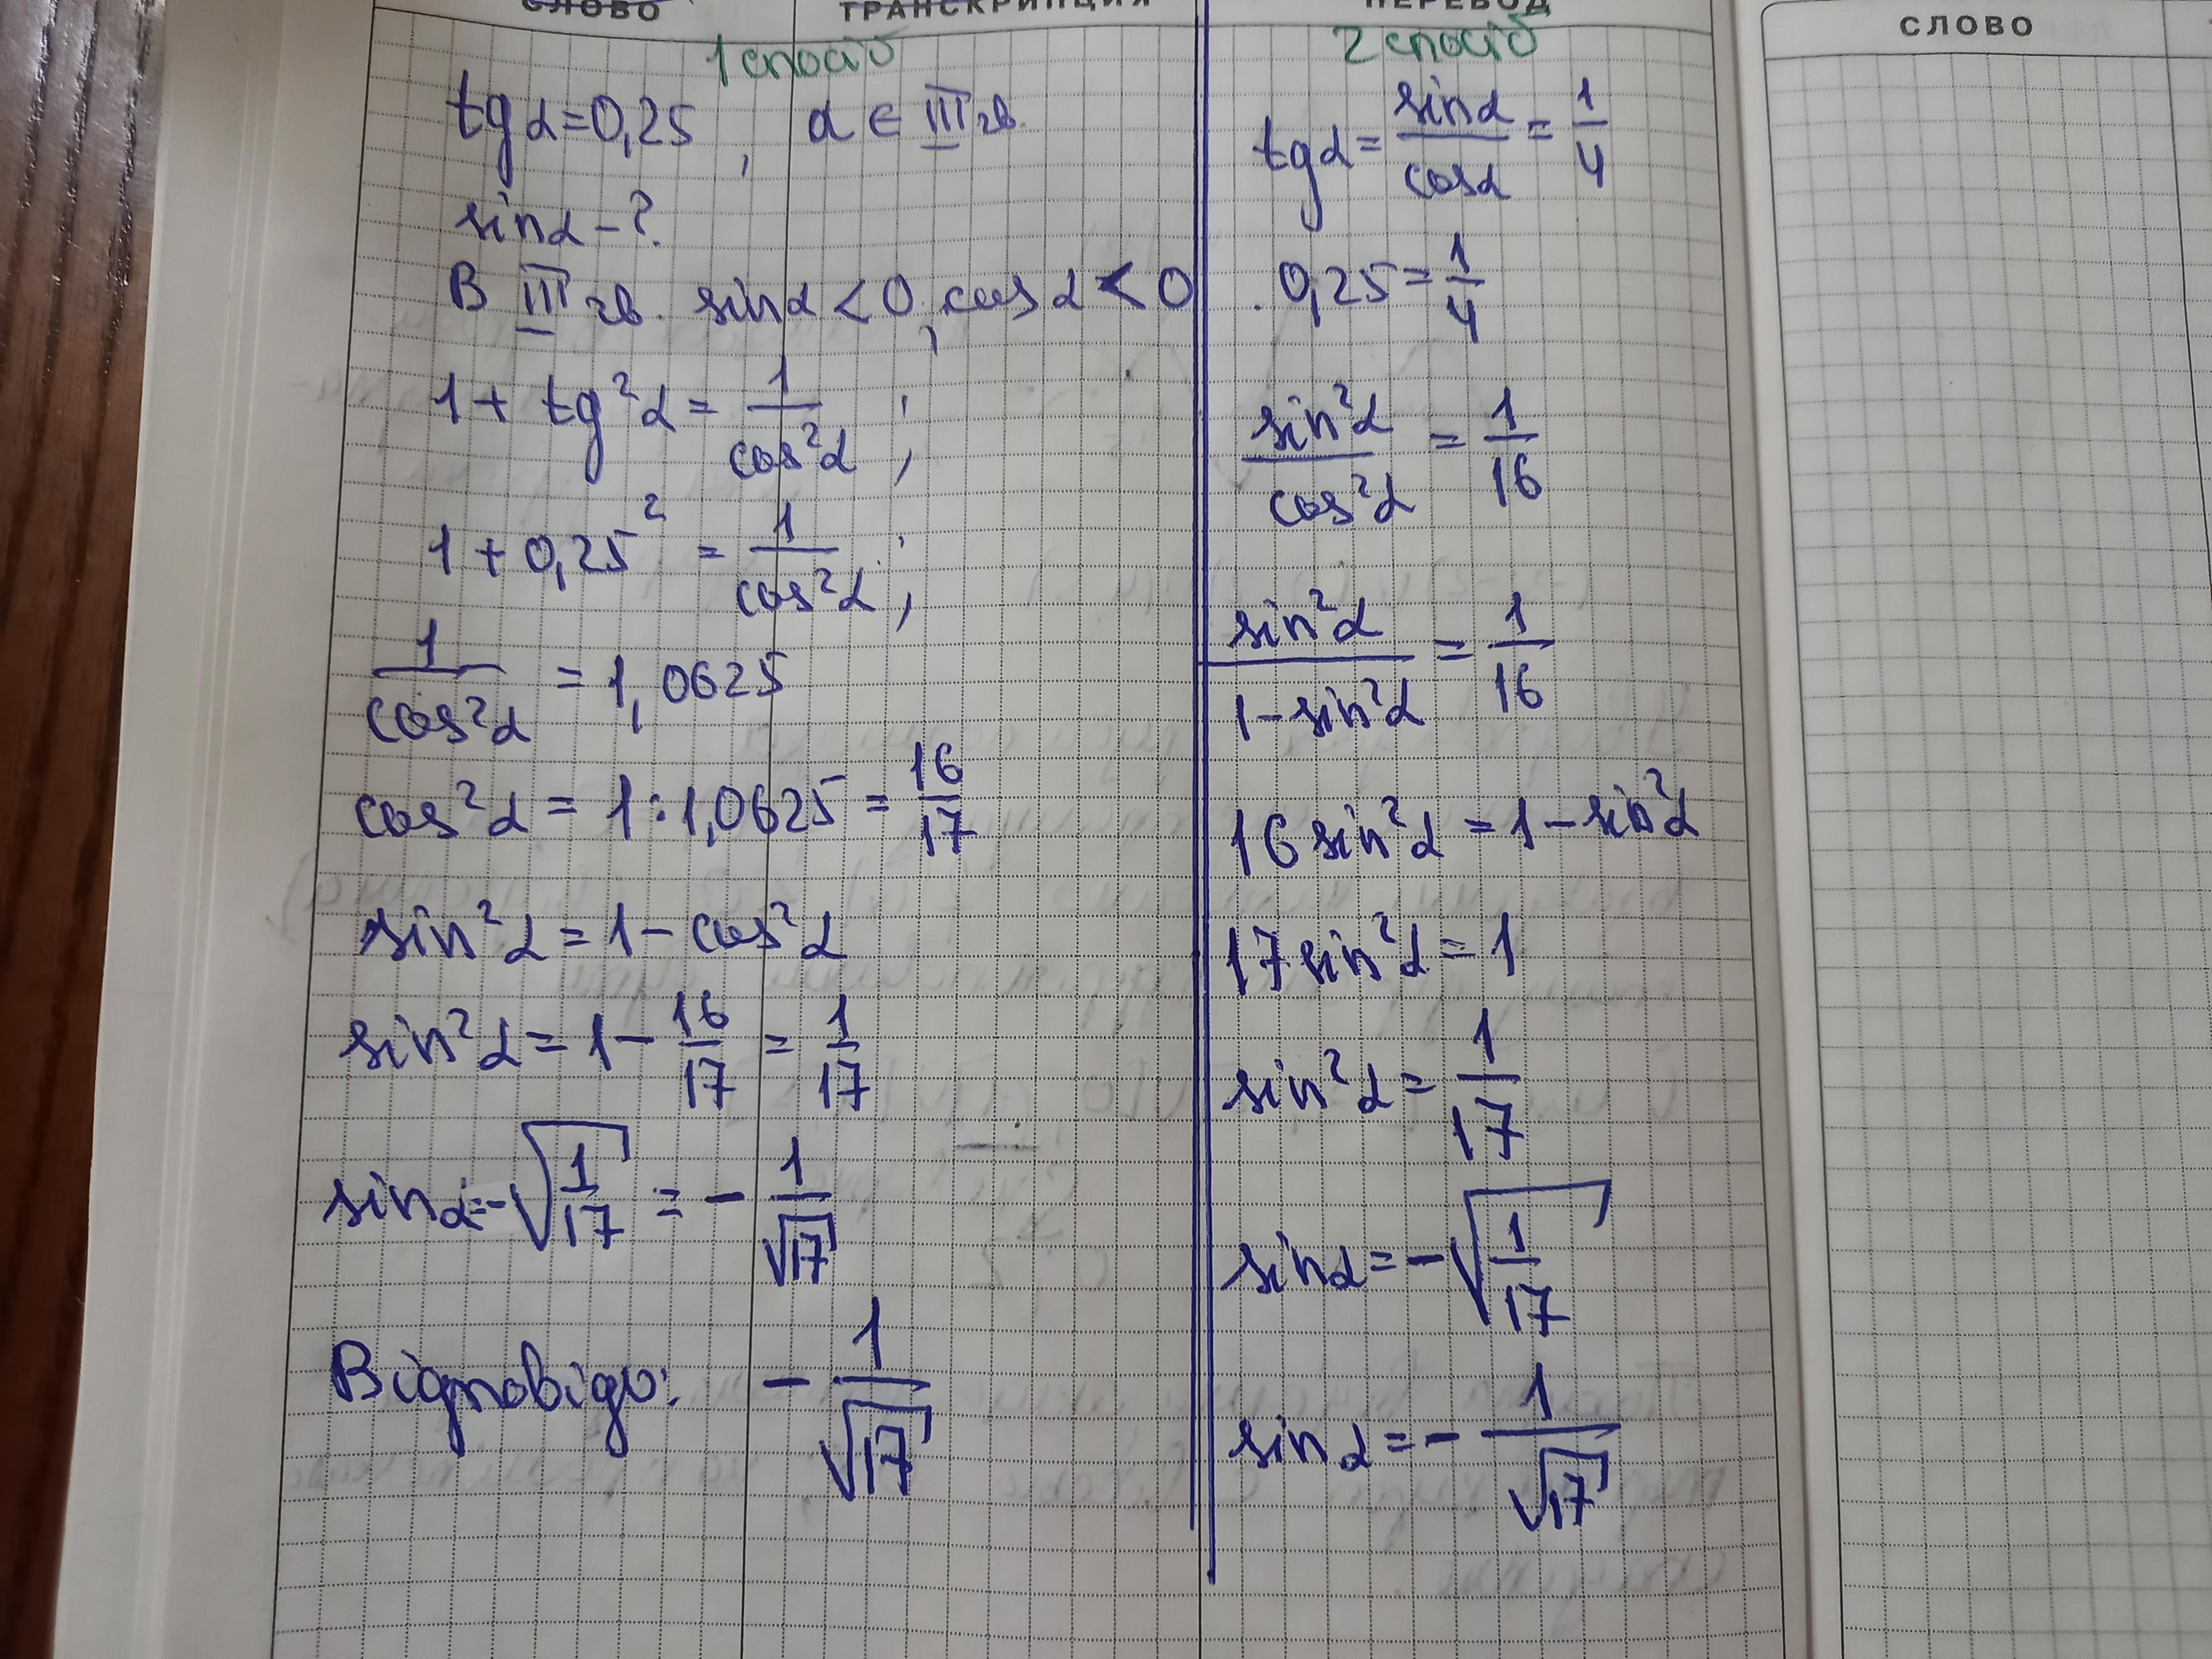 СЛОВО ТРАНСКРИПЦИЯ ПЕРЕВОД
СЛОВО
1 спосіб
tgα=0,25, α ∈ III чв.
sinα-?
В III чв. sinα<0, cosα<0
1+tg²α=1/cos²α;
1+0,25²=1/cos²α;
1/cos²α=1,0625
cos²α=1:1,0625=16/17
sin²α=1-cos²α
sin²α=1-16/17=1/17
sinα=-√(1/17)=-1/√17
Відповідь: -1/√17
2 спосіб
tgα=sinα/cosα=1/4
0,25=1/4
sin²α/cos²α=1/16
sin²α/(1-sin²α)=1/16
16sin²α=1-sin²α
17sin²α=1
sin²α=1/17
sinα=-√(1/17)
sinα=-1/√17